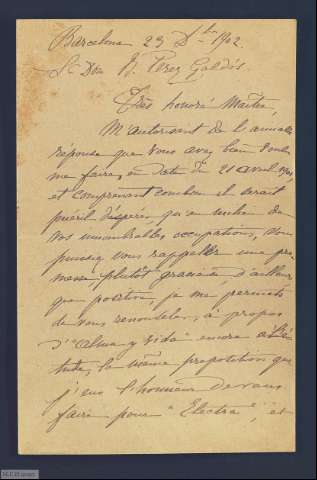 Barcelona 23 Dbre 1902.
Sr Don B. Perez Galdós.
Très honoré Maître,
M'autorisant de l'aimable
réponse que vous avez bien voulu
me faire, en date du 21 avril 1901
et comprenant combien il serait
puéril d'espérer qu'en dehors de
vos innombrables occupations, vous
puissiez vous rappeller une pro
messe, plutôt gracieuse d'ailleurs
que positive, je me permets
de vous renouveler, à propos
d'"Alma y vida" encore à l'é
tude, la même proposition que
j'eus l'honneur de vous
faire pour "Electra", et